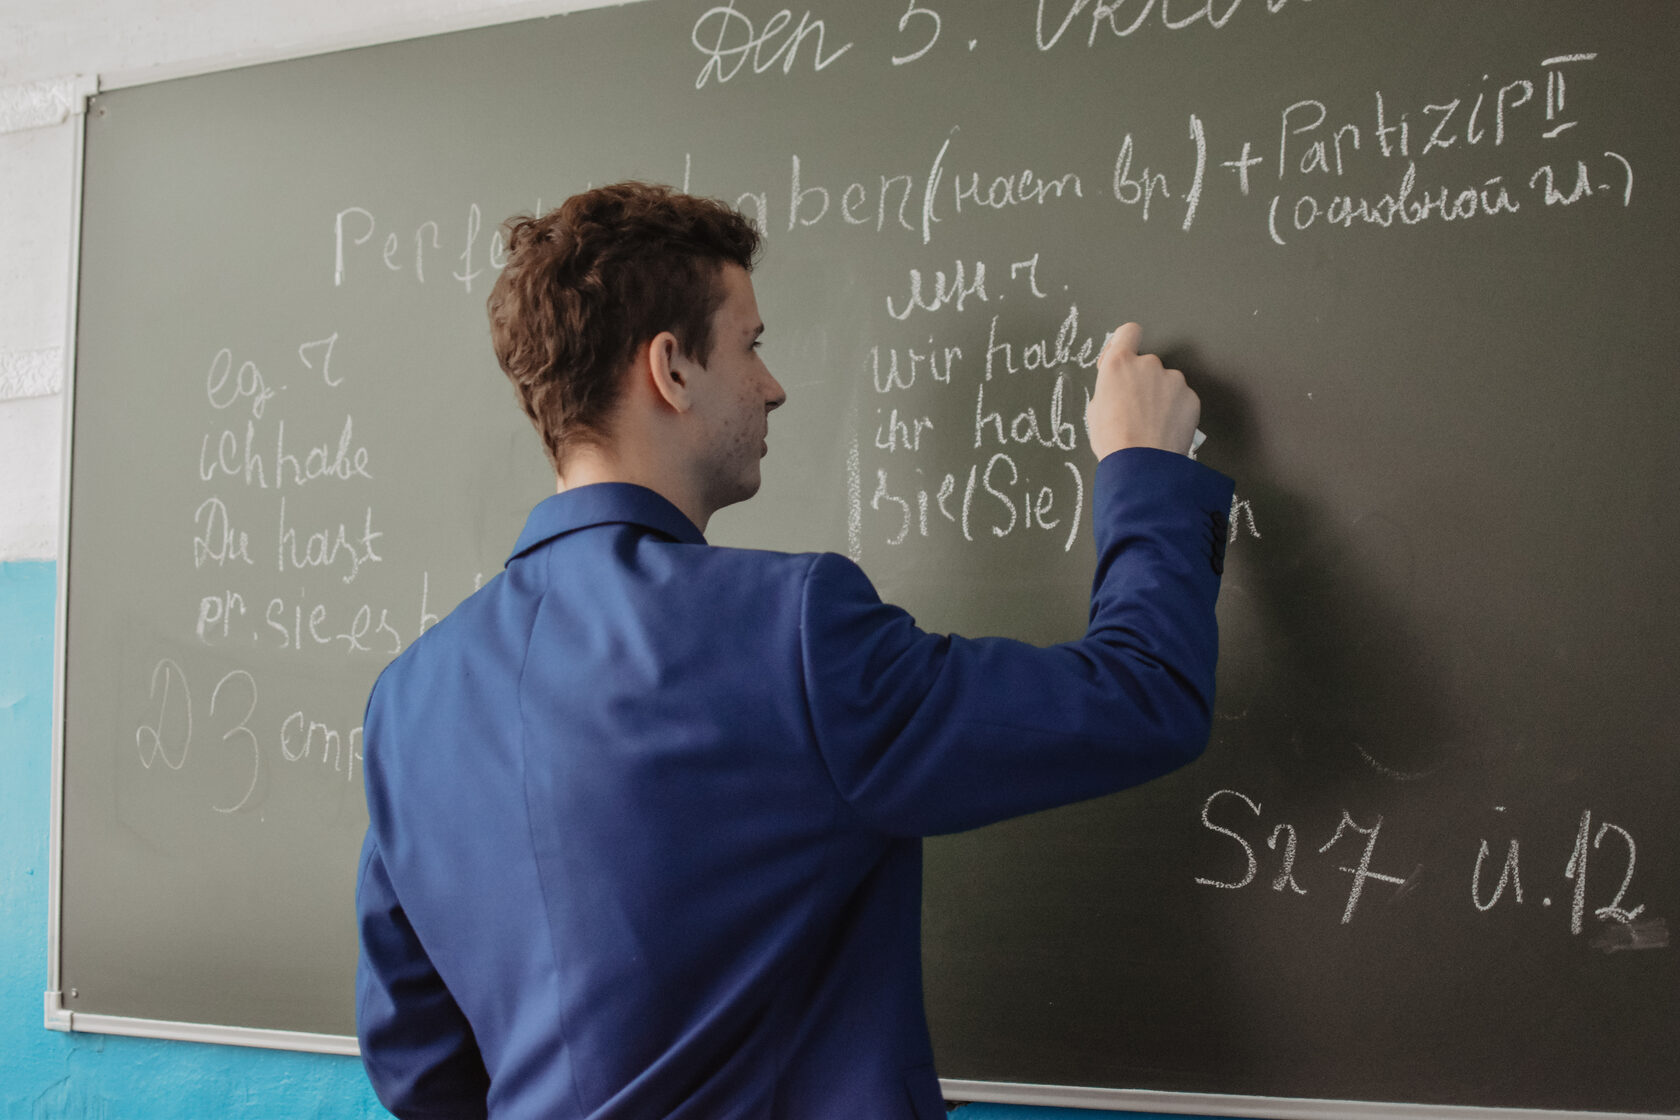 Den 5.
haben (наст вр.) + Partizip II
(основной гл.)
ед. ч
ich habe
Du hast
er.sie.es
ДЗ
мн. ч.
wir haben
ihr habt
sie (Sie)
S 27 ü. 12